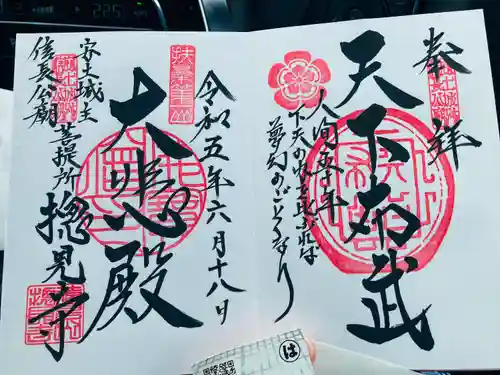 奉拝
天下布武
人間五十年
下天の内を比ぶれば
夢幻のごとくなり
令和五年六月十八日
大悲殿
安土城主
信長公廟
菩提所
摠見寺
は